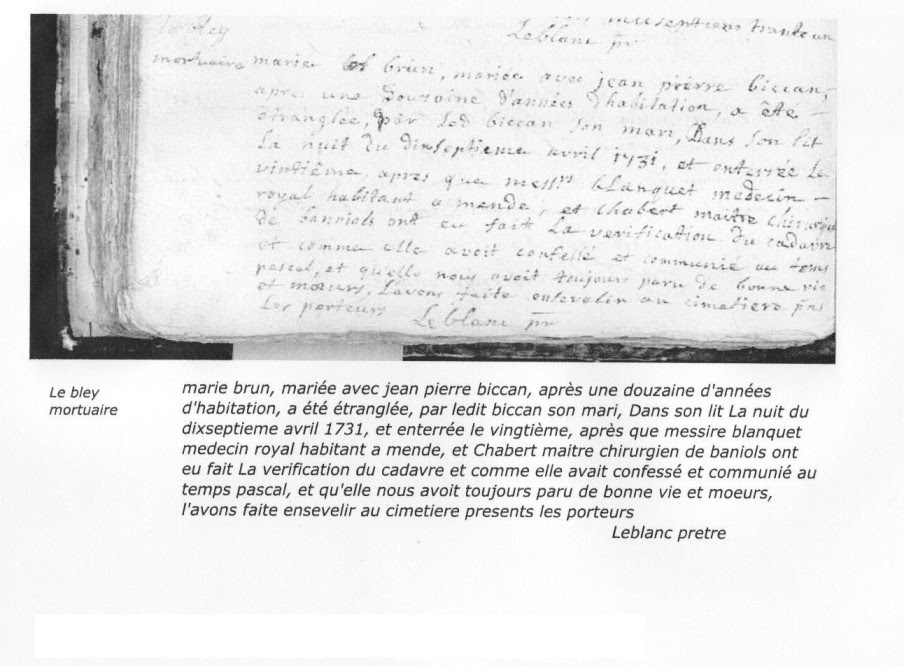 le bley
trante un
Leblanc pr
mortuaire marie brun, mariée avec jean pierre biccan,
apres une douzaine d'années d'habitation, a été
étranglée, par led biccan son mari, Dans son lit
La nuit du dixseptieme avril 1731, et enterrée le
vintiême, apres que mess.rs medecin
royal habitant a mende, et Chabert maitre chirurgien
de banniols ont eu fait La verification du cadavre
et comme elle avoit confessé et communié au tems
pascal, et qu'elle nous avoit toujours paru de bonne vie
et mœurs, L'avons faite ensevelir au cimetiere pns
Les porteurs Leblanc pr
Le bley
mortuaire
marie brun, mariée avec jean pierre biccan, après une douzaine d'années
d'habitation, a été étranglée, par ledit biccan son mari, Dans son lit La nuit du
dixseptieme avril 1731, et enterrée le vingtième, après que messire blanquet
medecin royal habitant a mende, et Chabert maitre chirurgien de baniols ont
eu fait La verification du cadavre et comme elle avait confessé et communié au
temps pascal, et qu'elle nous avoit toujours paru de bonne vie et moeurs,
l'avons faite ensevelir au cimetiere presents les porteurs
Leblanc pretre